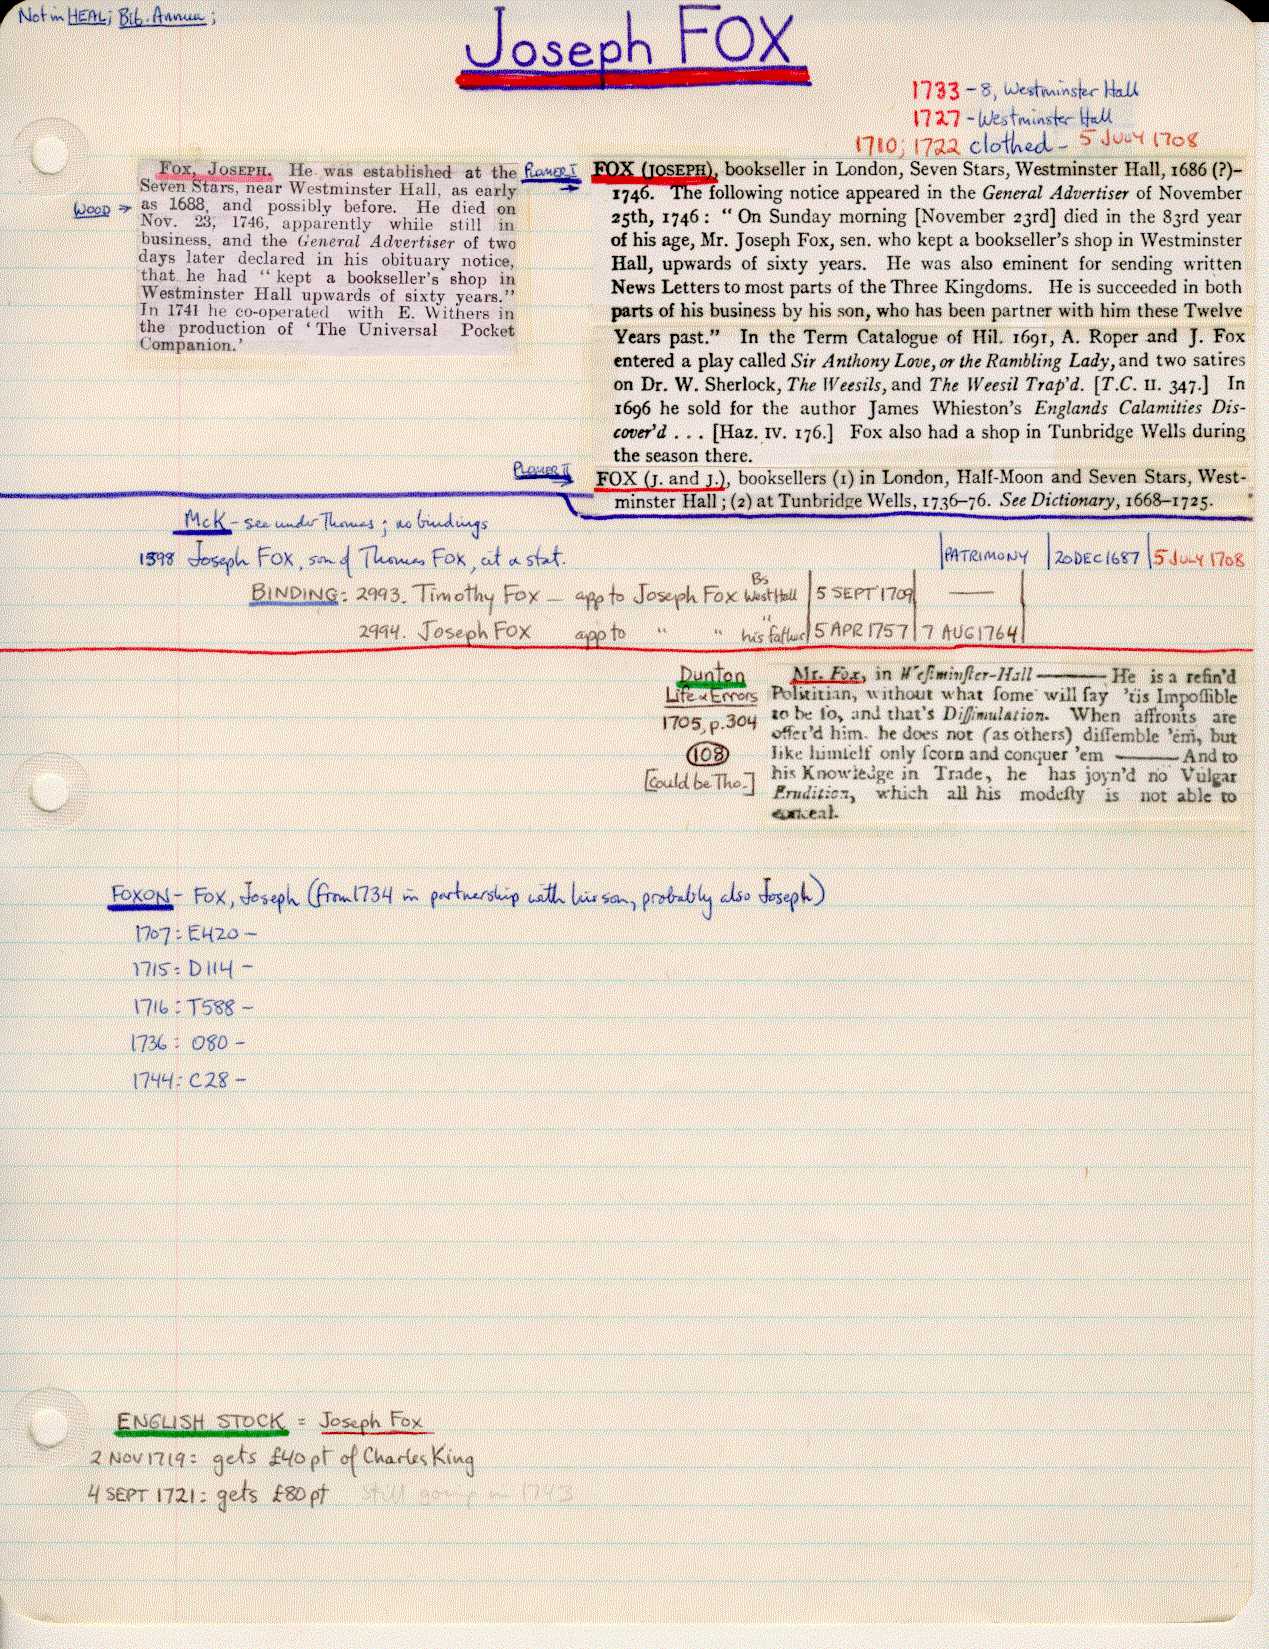 Not in HEAL; Bib. Annua;
Joseph FOX
1733 - 8, Westminster Hall
1727 - Westminster Hall
1710; 1722 clothed - 5 JULY 1708
WOOD →
FOX, JOSEPH. He was established at the
Seven Stars, near Westminster Hall, as early
as 1688, and possibly before. He died on
Nov. 23, 1746, apparently while still in
business, and the General Advertiser of two
days later declared in his obituary notice,
that he had "kept a bookseller's shop in
Westminster Hall upwards of sixty years."
In 1741 he co-operated with E. Withers in
the production of 'The Universal Pocket
Companion.'
PLOMER I →
FOX (JOSEPH), bookseller in London, Seven Stars, Westminster Hall, 1686 (?)–
1746. The following notice appeared in the General Advertiser of November
25th, 1746: "On Sunday morning [November 23rd] died in the 83rd year
of his age, Mr. Joseph Fox, sen. who kept a bookseller's shop in Westminster
Hall, upwards of sixty years. He was also eminent for sending written
News Letters to most parts of the Three Kingdoms. He is succeeded in both
parts of his business by his son, who has been partner with him these Twelve
Years past." In the Term Catalogue of Hil. 1691, A. Roper and J. Fox
entered a play called Sir Anthony Love, or the Rambling Lady, and two satires
on Dr. W. Sherlock, The Weesils, and The Weesil Trap'd. [T.C. II. 347.] In
1696 he sold for the author James Whieston's Englands Calamities Dis-
cover'd . . . [Haz. IV. 176.] Fox also had a shop in Tunbridge Wells during
the season there.
PLOMER II →
FOX (J. and J.), booksellers (1) in London, Half-Moon and Seven Stars, West-
minster Hall; (2) at Tunbridge Wells, 1736–76. See Dictionary, 1668–1725.
McK - see under Thomas; no bindings
1598 Joseph FOX, son of Thomas FOX, cit & stat. | PATRIMONY | 20 DEC 1687 | 5 JULY 1708
BINDING: 2993. Timothy FOX — app to Joseph FOX Bs West Hall | 5 SEPT 1709 | —
2994. Joseph FOX app to " " " his father | 5 APR 1757 | 7 AUG 1764
Dunton
Life & Errors
1705, p.304
108
[Could be Tho.]
Mr. Fox, in Weſtminſter-Hall —— He is a refin'd
Polititian, without what ſome will ſay 'tis Impoſſible
to be ſo, and that's Diſſimulation. When affronts are
offer'd him, he does not (as others) diſſemble 'em, but
like himſelf only ſcorn and conquer 'em —— And to
his Knowledge in Trade, he has joyn'd no Vulgar
Erudition, which all his modeſty is not able to
conceal.
FOXON - FOX, Joseph (from 1734 in partnership with his son, probably also Joseph)
1707: E420 -
1715: D114 -
1716: T588 -
1736: O80 -
1744: C28 -
ENGLISH STOCK = Joseph Fox
2 NOV 1719: gets £40 pt of Charles King
4 SEPT 1721: gets £80 pt still going in 1743